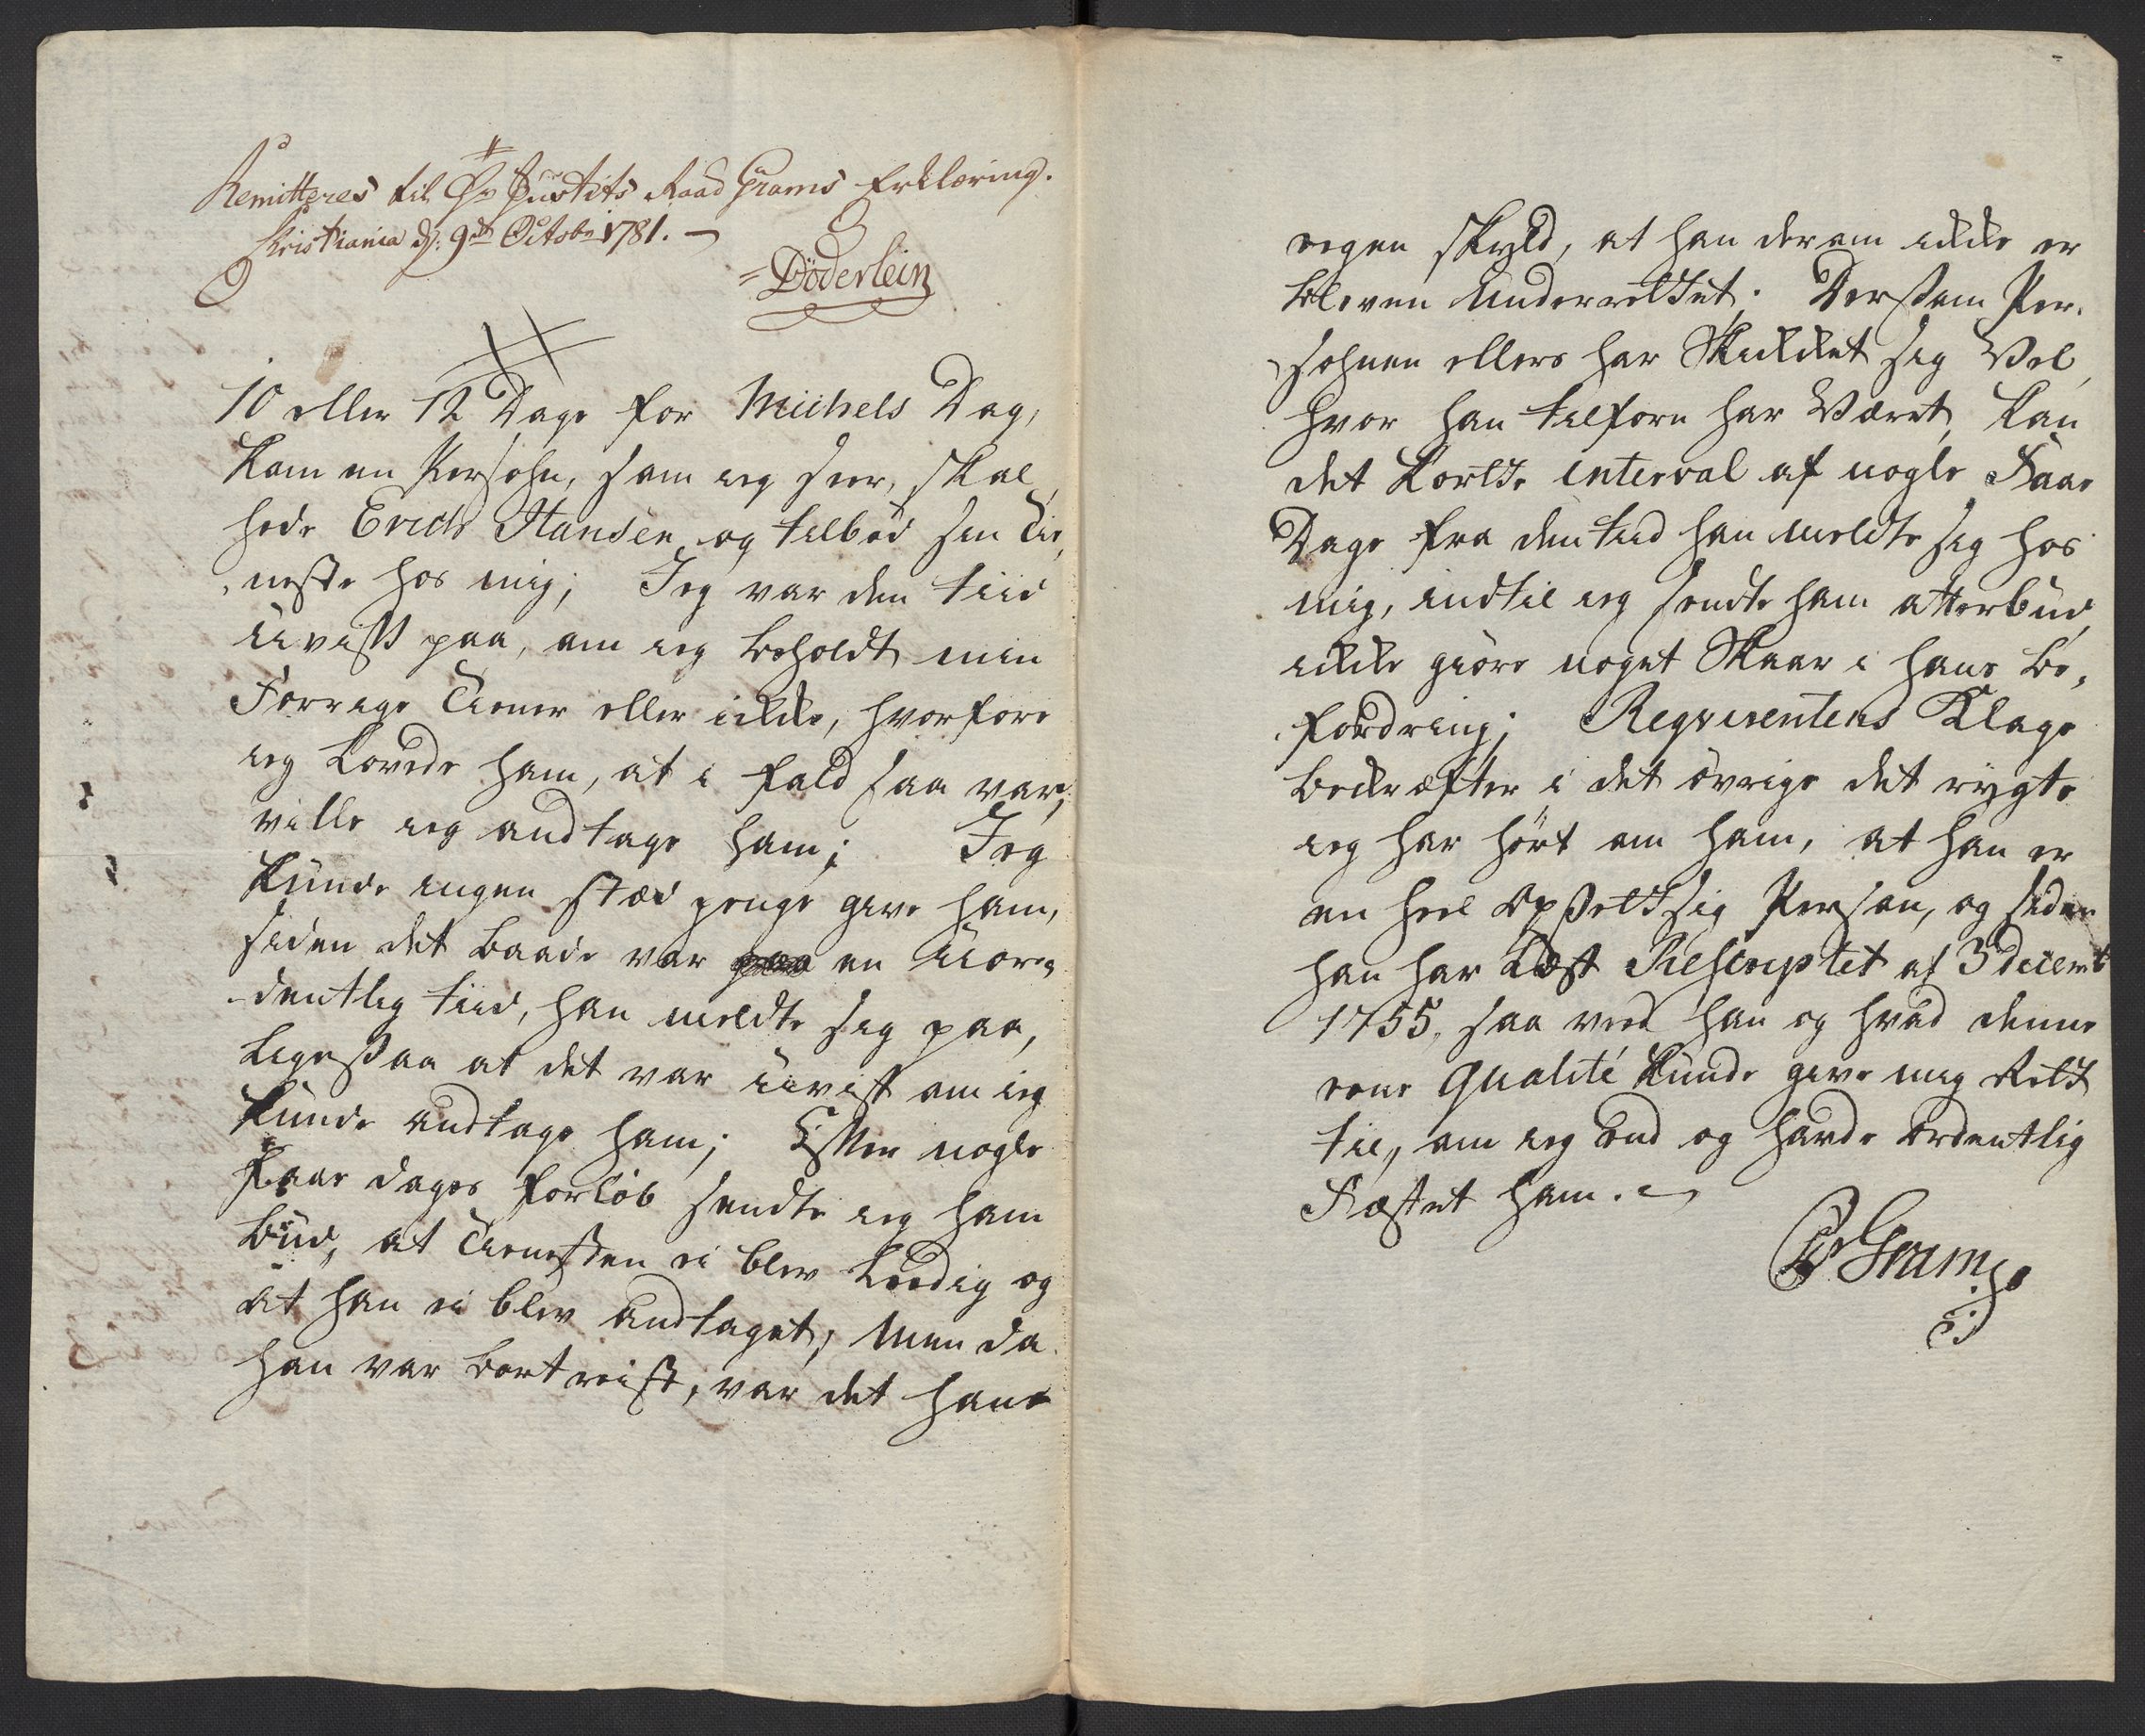 Remitteres til Hr Justits Raad Grams Erklæring.
Christiania d: 9de Octobr 1781. –
Döderlein
10 eller 12 Dage for Michels Dag,
kom en Persohn, som ieg seer, skal
hede Erich Hansen og tilbød sin Tie,
neste hos mig; Jeg var den tiid
uvist paa, om ieg beholdt min
Forrige Tiener eller ikke, hvorfore
ieg Lovede ham, at i fald saa var,
ville ieg andtage ham; Jeg
kunde ingen sted penge give ham,
siden det baade var en uor,
dentlig tiid, han meldte sig paa,
Ligesaa at det var uvist om ieg
kunde andtage ham; Efter nogle
Faae dages forløb sendte ieg ham
bud, at Tienesten ei blev Leedig og
at han ei blev andtaget; Men da
han var bortreist, var det hans
eegen skyld, at han derom ikke er
bleven Underrettet. Dersom Per,
sohnen ellers har Skikket sig Vel,
hvor han tilforn har Været, kan
det korte interval af nogle Faae
Dage fra den tiid han meldte sig hos
mig, indtil ieg sendte ham atterbud,
ikke giøre noget Skaar i hans be,
fordring; Reqvirentens Klage
bekræfter i det øvrige det rygte
ieg har hørt om ham, at han er
en heel opsetsig Person, og siden
han har Læst Rescriptet af 3 decemb
1755, saa veed han og hvad denne
eene Qualité kunde give mig Rett
til, om ieg end og havde ordentlig
Fæstet ham. –
Gram